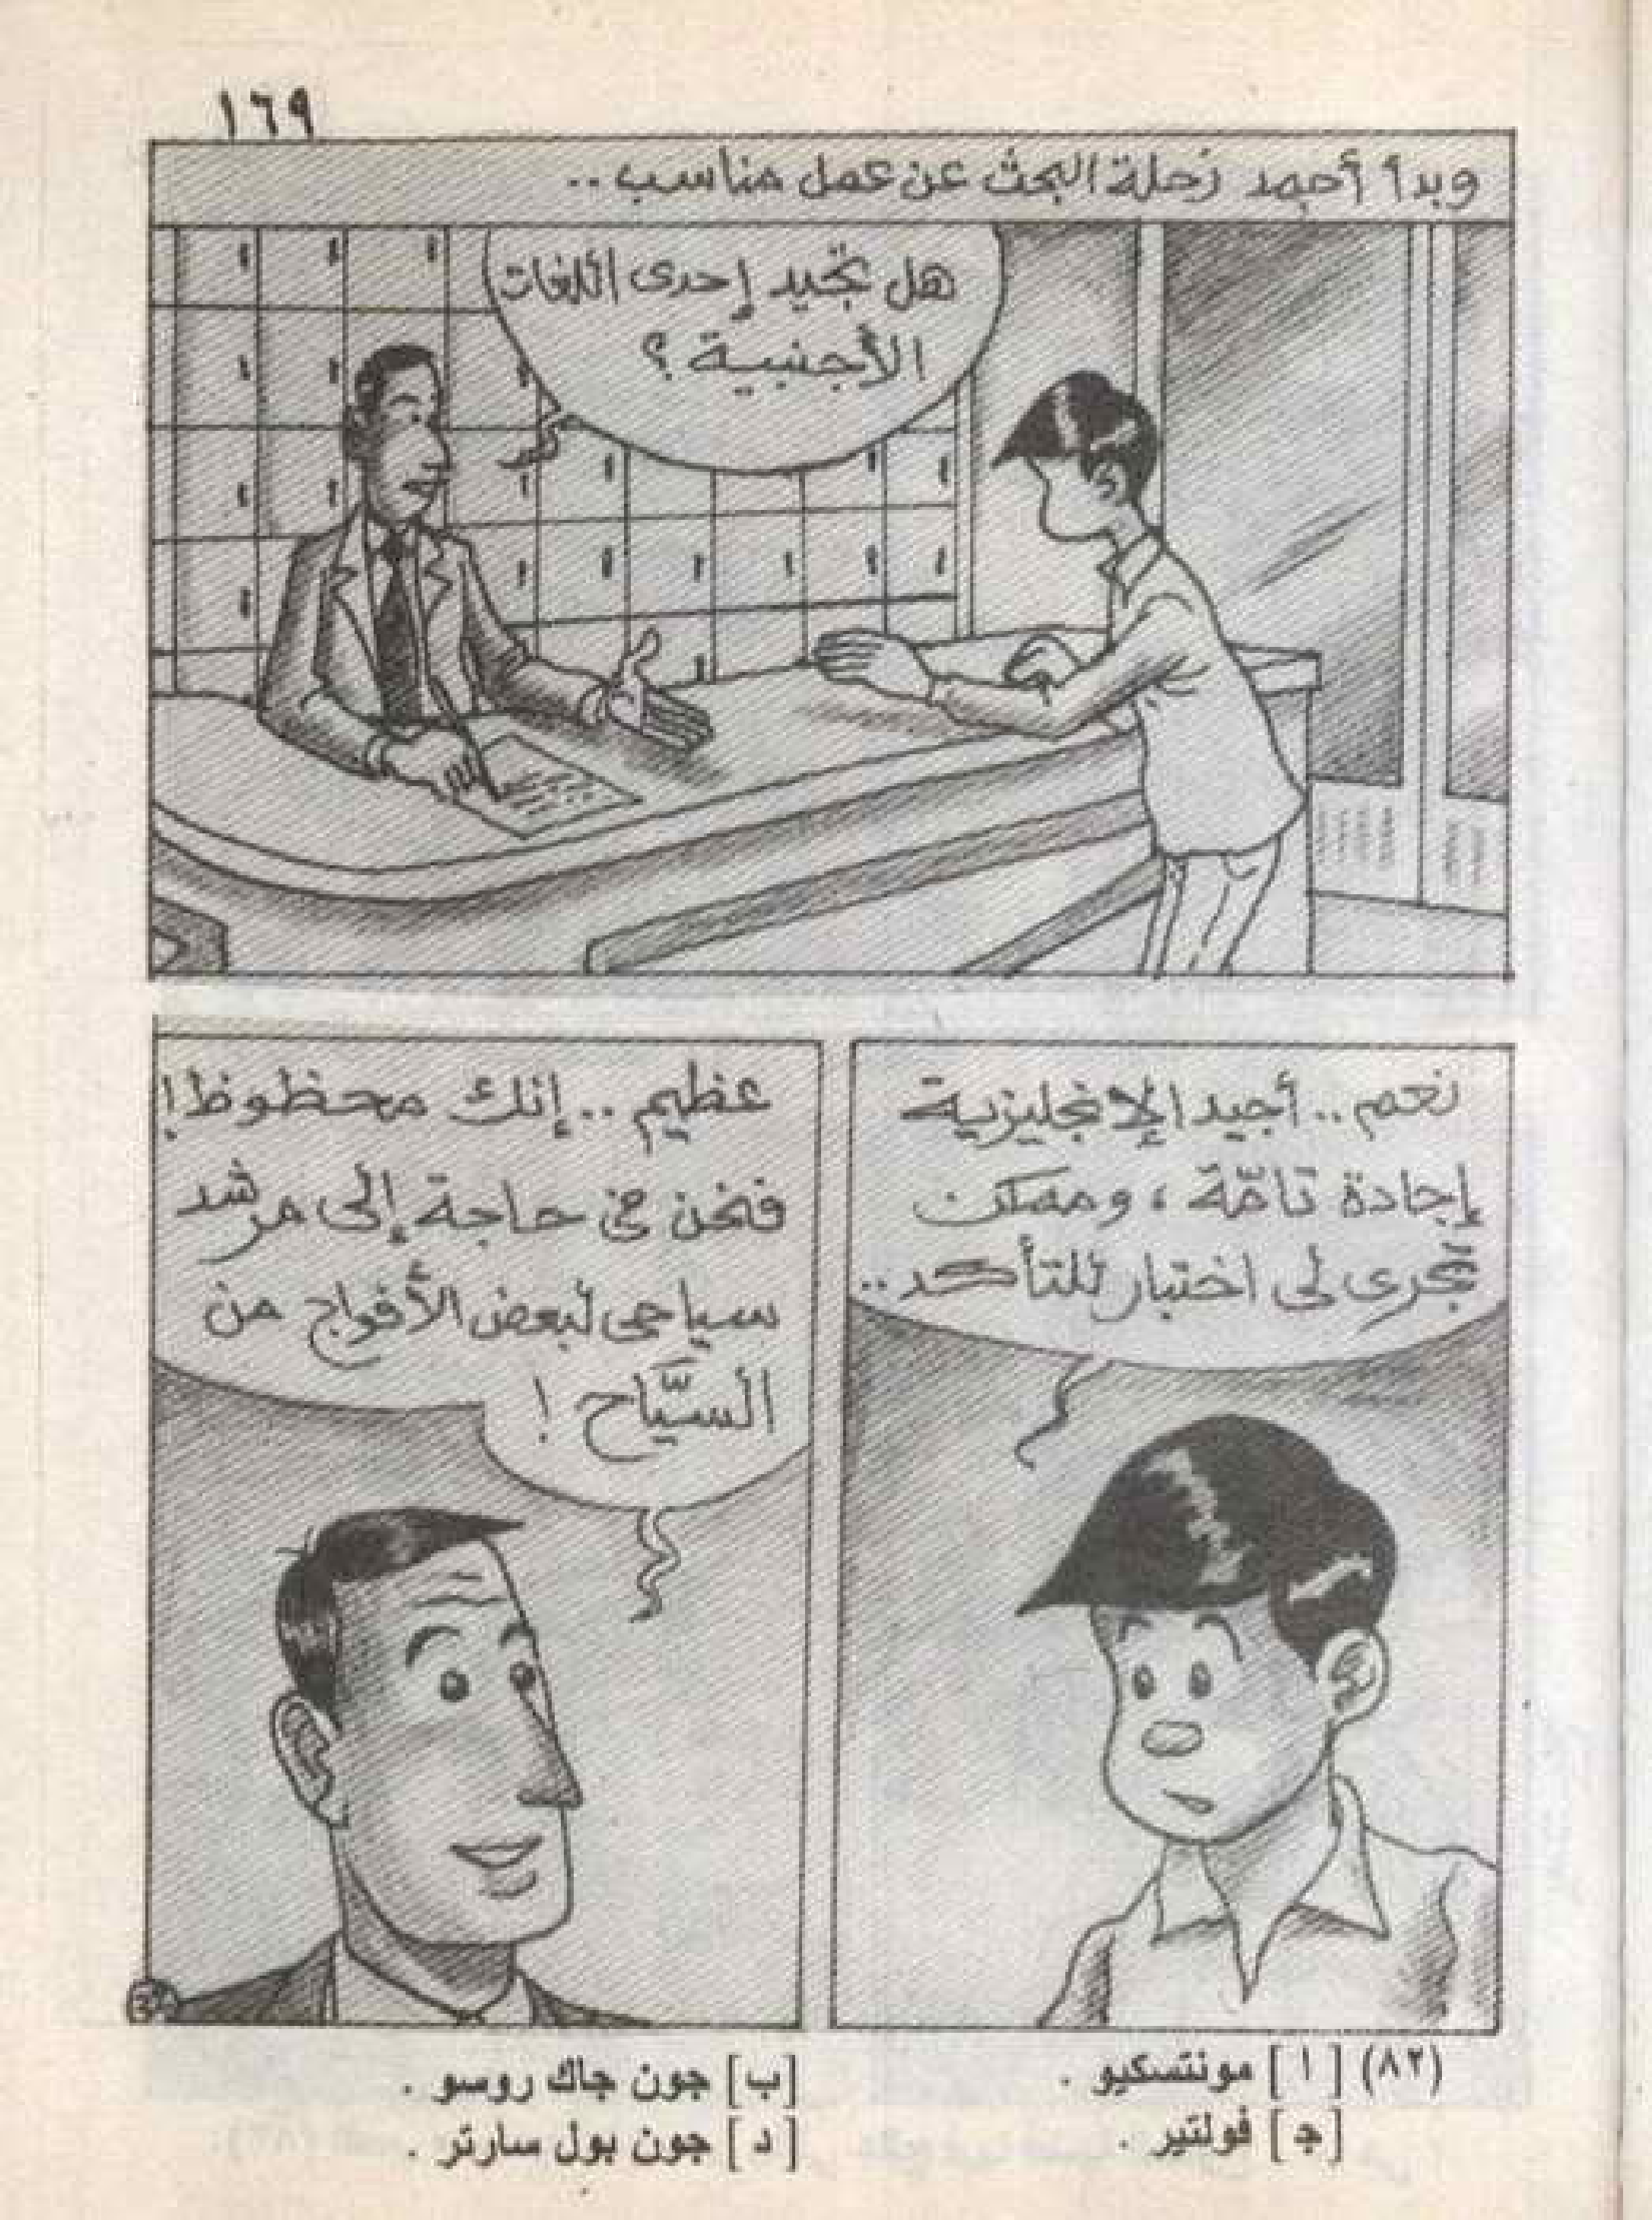 ١٦٩
وبدأ أحمد رحلة البحث عن عمل مناسب..
هل تجيد إحدى اللغات
الأجنبية ؟
نعم.. أجيد الإنجليزية
إجادة تامّة ، وممكن
تجرى لى اختبار للتأكد..
عظيم.. إنك محظوظ!
فنحن فى حاجة إلى مرشد
سياحى لبعض الأفواج من
السيَّاح !
(٨٢) [ ا ] مونتسكيو .
[ب] جون جاك روسو .
[ج] فولتير .
[ د ] جون بول سارتر .